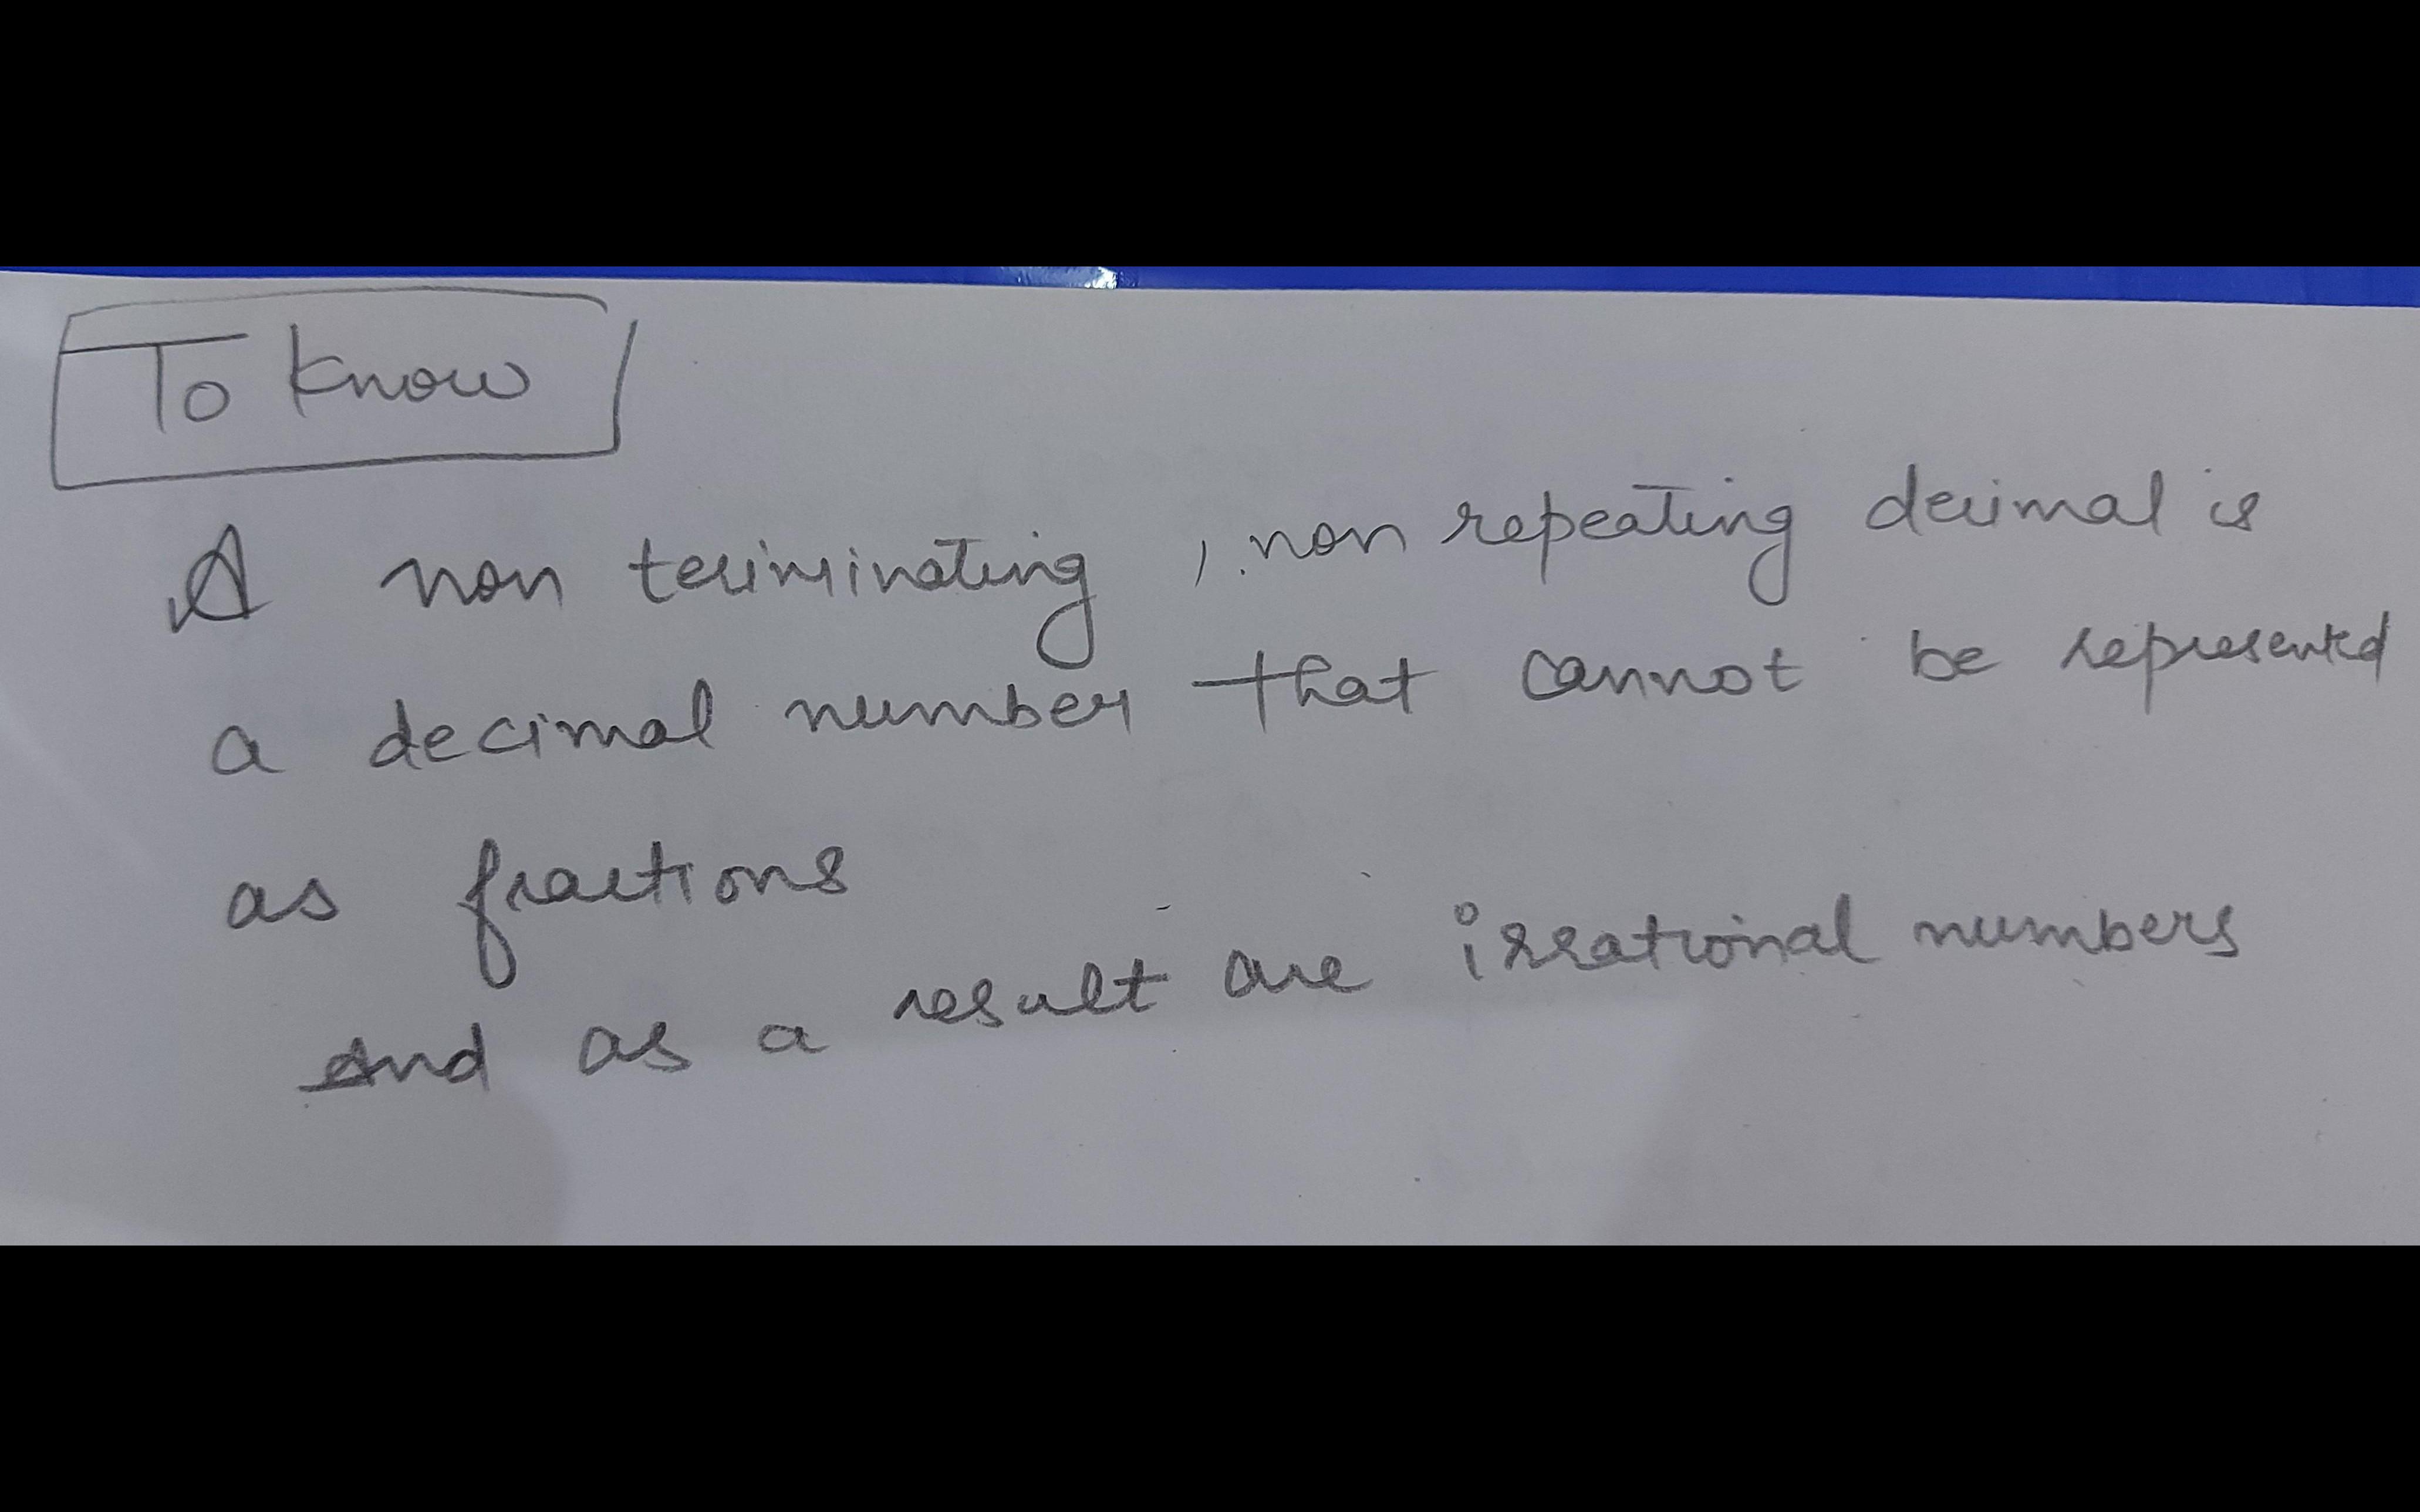 To Know
A non terminating, non repeating decimal is
a decimal number that cannot be represented
as fractions
And as a result are irrational numbers